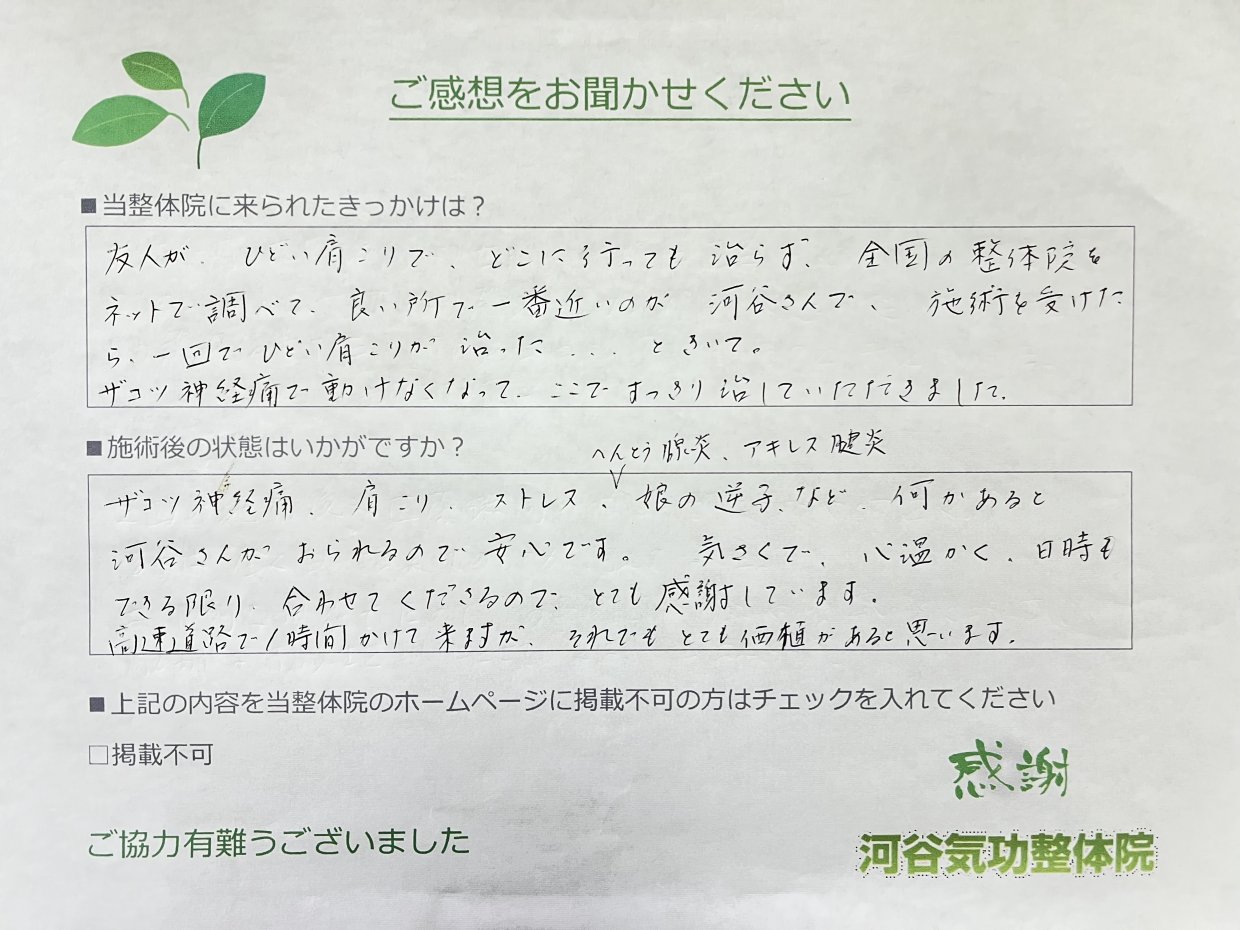 ご感想をお聞かせください
■当整体院に来られたきっかけは？
友人が、ひどい肩こりで、どこに行っても治らず、全国の整体院を
ネットで調べて、良い所で一番近いのが河谷さんで、施術を受けた
ら、一回でひどい肩こりが治った...ときいて。
ザコツ神経痛で動けなくなって、ここですっきり治していただきました。
■施術後の状態はいかがですか？
へんとう腺炎、アキレス腱炎
ザコツ神経痛、肩こり、ストレス、娘の逆子、など、何かあると
河谷さんがおられるので安心です。気さくで、心温かく、日時も
できる限り、合わせてくださるので、とても感謝しています。
高速道路で1時間かけて来ますが、それでもとても価値があると思います。
■上記の内容を当整体院のホームページに掲載不可の方はチェックを入れてください
□掲載不可
感謝
ご協力有難うございました
河谷気功整体院